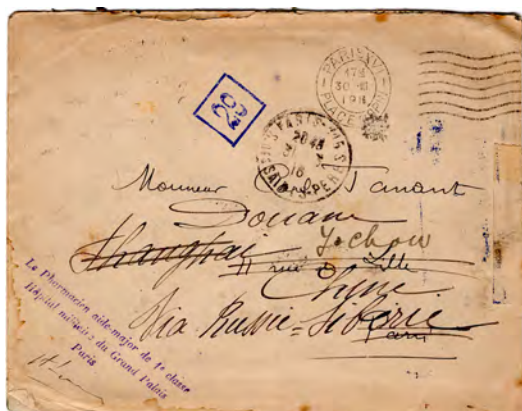 PARIS XVI
17 30
30 - III
1911
PLACE CHOPIN
29
PARIS
20 45
16
SAINTS-PERES
Monsieur Tanant
Douane
Shanghai Yochow
11 rue de Lille
Chine
Via Russie-Sibérie
Paris
Le Pharmacien aide-major de 1e classe
Hôpital militaire du Grand Palais
Paris